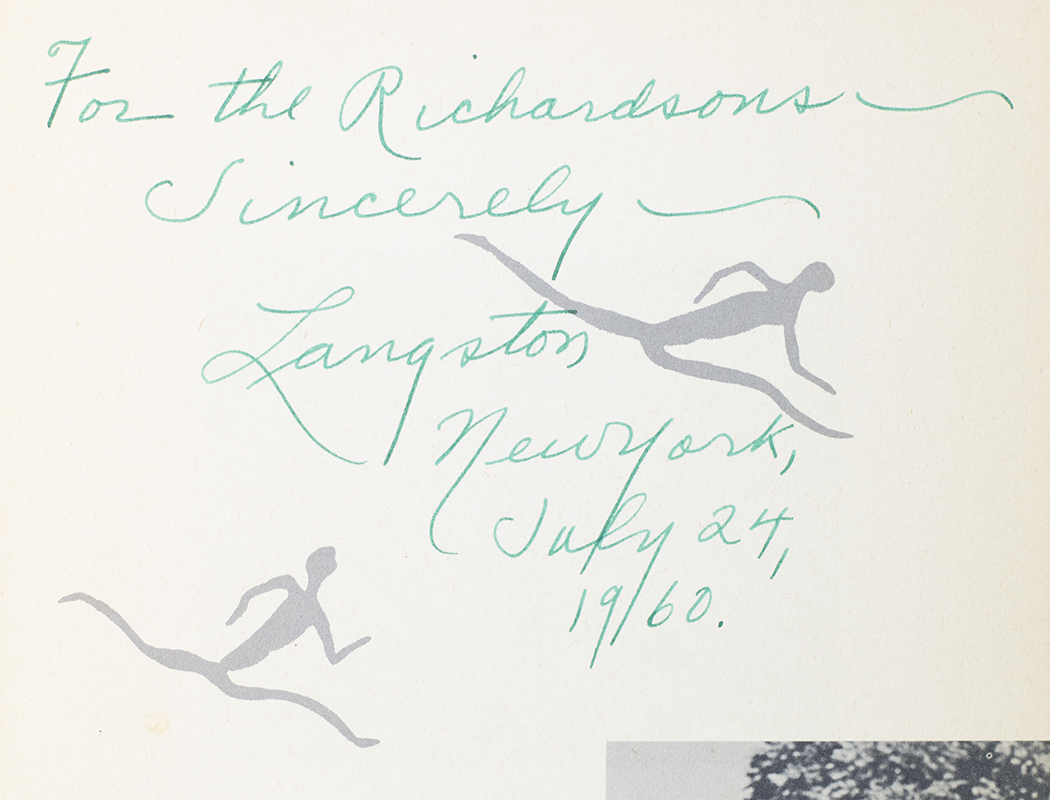 For the Richardsons
Sincerely
Langston
New York,
July 24,
1960.